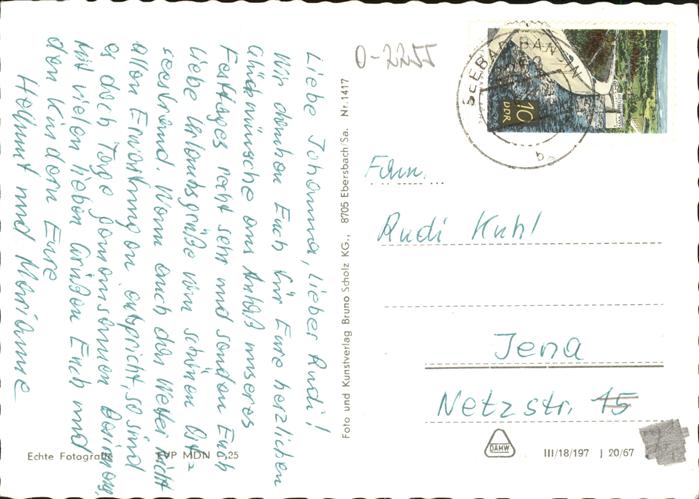 Liebe Johanna, lieber Rudi!
Wir danken Euch für Eure herzlichen
Glückwünsche aus Anlaß unseres
Festtages recht sehr und senden Euch
liebe Urlaubsgrüße vom schönen Ost=
seestrand. Wenn auch das Wetter nicht
allen Erwartungen entspricht, so sind
es doch Tage gemeinsamen
Mit vielen lieben Grüßen Euch und
den Kindern Eure
Helmut und Marianne
Echte Fotografie EVP MDN 0,25
Foto und Kunstverlag Bruno Scholz KG., 8705 Ebersbach/Sa. Nr. 1417
0-2255
SEEBAD BANSIN
10
DDR
Fam.
Rudi Kuhl
Jena
Netzstr. 15
DAMW
III/18/197 J 20/67